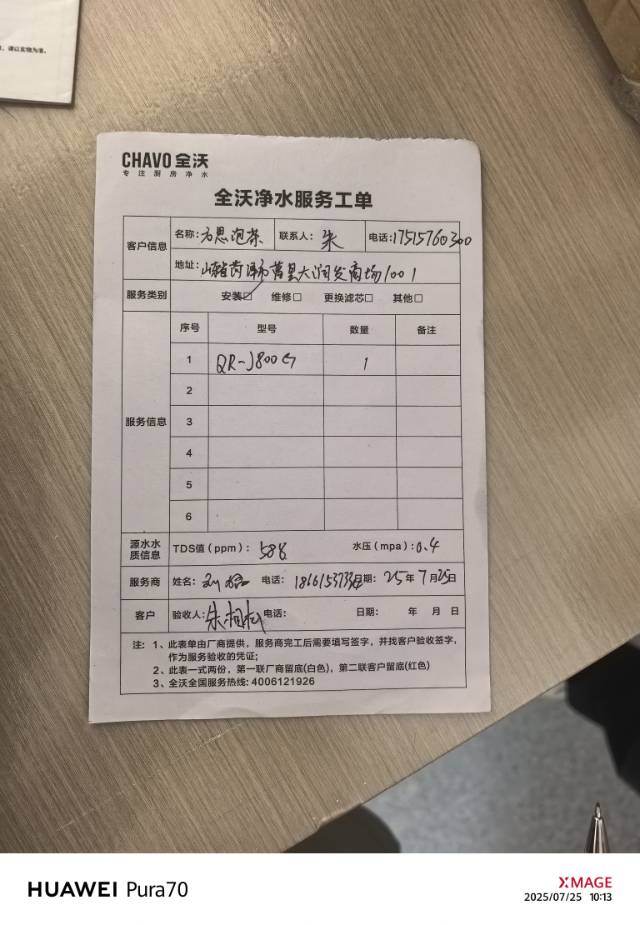 请以实物为准。
CHAVO 全沃
专注厨房净水
全沃净水服务工单
客户信息 名称: 方思泡茶 联系人: 朱 电话: 17515760300
地址: 大润发商场1001
服务类别 安装☑ 维修□ 更换滤芯□ 其他□
服务信息 序号 型号 数量 备注
1 QR-J800G 1
2
3
4
5
6
源水水质信息 TDS值(ppm): 588 水压(mpa): 0.4
服务商 姓名: 电话: 日期: 25年7月25日
客户 验收人: 电话: 日期: 年 月 日
注: 1、此表单由厂商提供,服务商完工后需要填写签字,并找客户验收签字,
作为服务验收的凭证;
2、此表一式两份,第一联厂商留底(白色),第二联客户留底(红色)
3、全沃全国服务热线: 4006121926
HUAWEI Pura70
XMAGE
2025/07/25 10:13